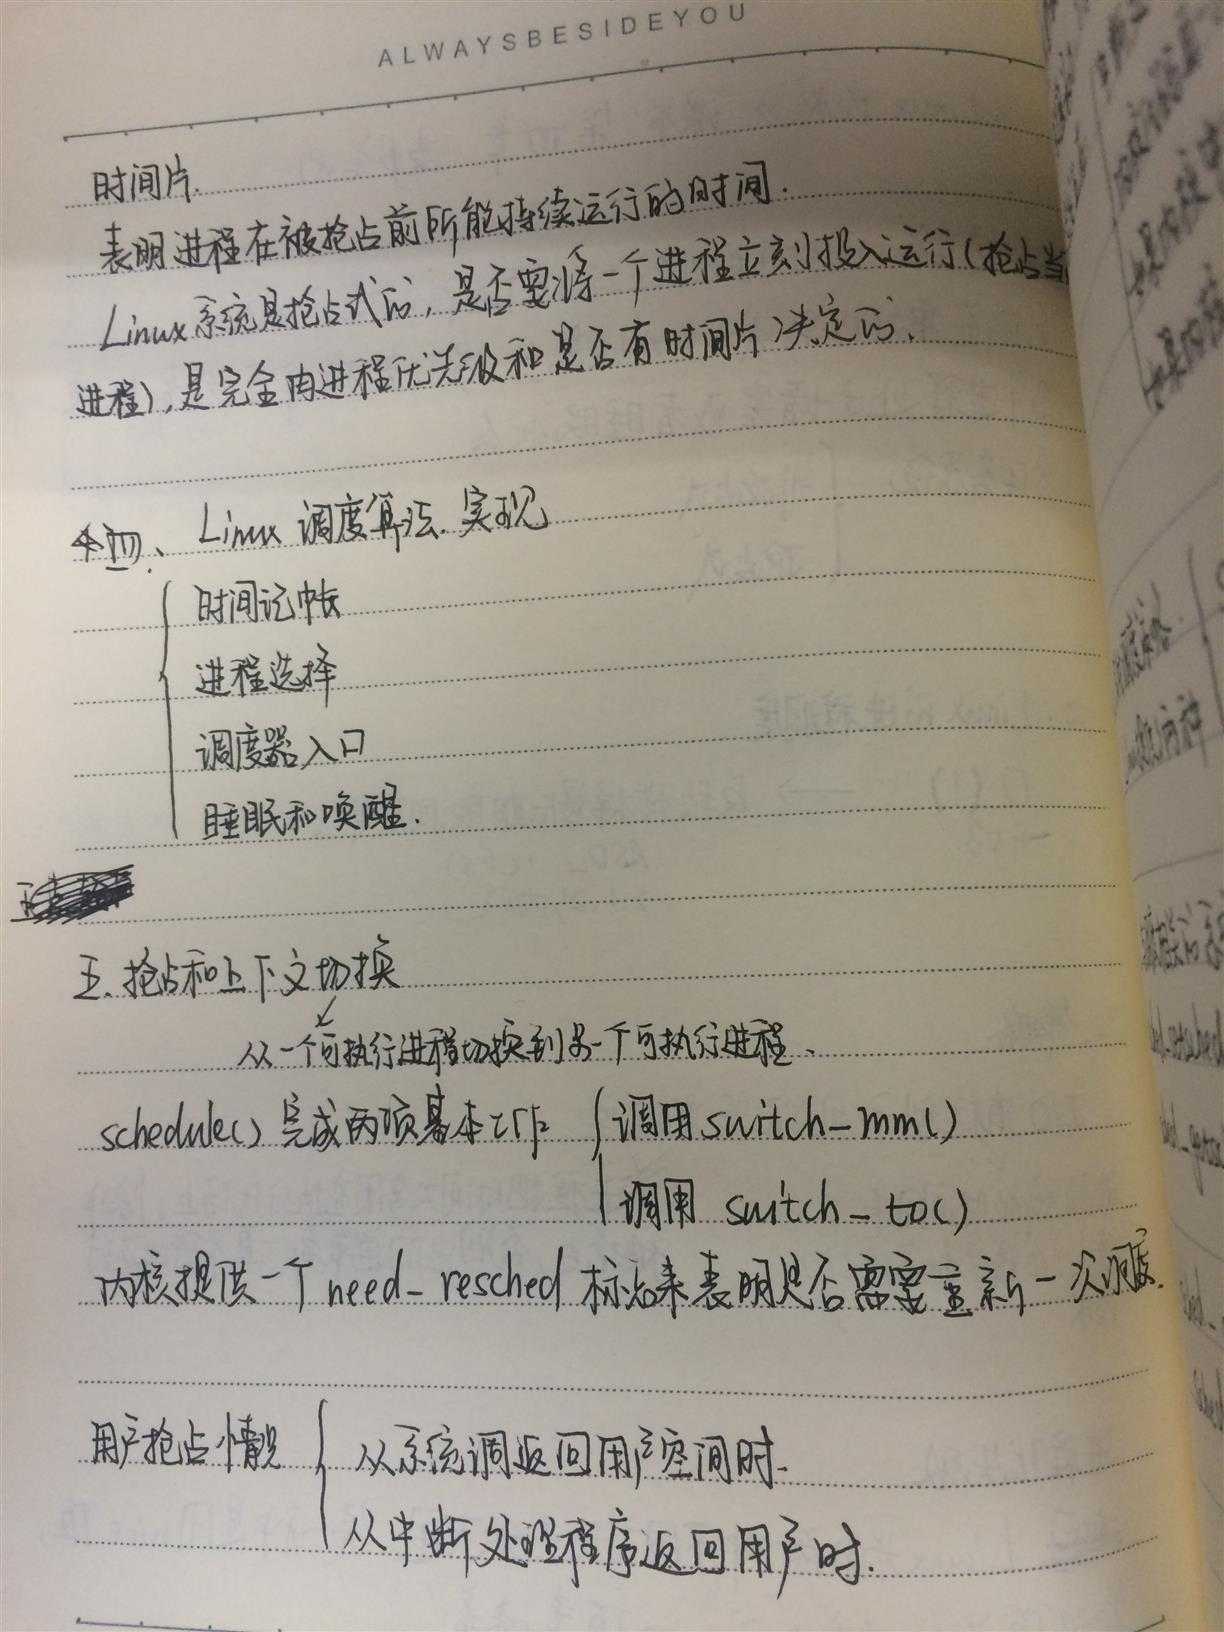 ALWAYSBESIDEYOU
时间片.
表明进程在被抢占前所能持续运行的时间.
Linux系统是抢占式的,是否要将一个进程立刻投入运行(抢占当
进程),是完全由进程优先级和是否有时间片决定的.
四、Linux 调度算法.实现
时间记帐
进程选择
调度器入口
睡眠和唤醒.
五.抢占和上下文切换
从一个可执行进程切换到另一个可执行进程.
schedule()完成两项基本工作
调用switch_mm()
调用 switch_to()
内核提供一个need_resched标志来表明是否需要重新一次调度.
用户抢占情况
从系统调返回用户空间时.
从中断处理程序返回用户时.